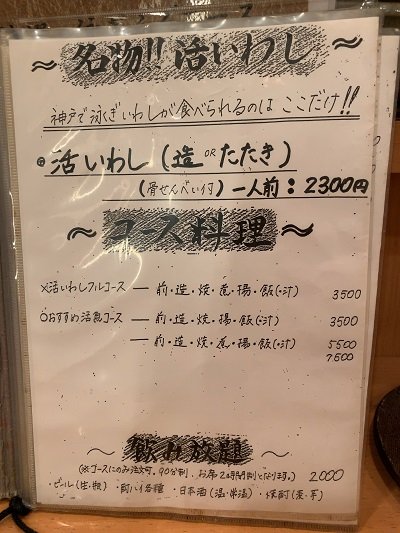 ~ 名物!! 活いわし ~
神戸で泳ぎいわしが食べられるのは ここだけ!!
活いわし(造 OR たたき)
(骨せんべい付) 一人前:2300円
~ コース料理 ~
×活いわしフルコース ― 前・造・焼・煮・揚・飯(・汁) 3500
○おすすめ活魚コース ― 前・造・焼・揚・飯(・汁) 3500
― 前・造・焼・煮・揚・飯(・汁) 5500
7500
~ 飲み放題 ~
(※コースにのみ注文可。90分制。お席2時間制となります。) 2000
・ビール(生・瓶)・酎ハイ各種・日本酒(温・常温)・焼酎(麦・芋)